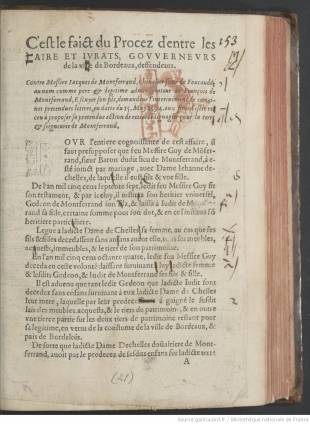 C'est le faict du Procez d'entre les
MAIRE ET IVRATS, GOVVERNEVRS
de la ville de Bordeaux, deffendeurs.
153
Contre Messire Iacques de Montferrand,
au nom comme pere & legitime administrateur de François de
Montferrand, Escuyer son fils, demandeur
pretendues lettres,
ceu a proposer sa pretendue action de pour la terre
& seigneurie de Montferrand.
POVR l'entiere cognoissance de cest affaire, il
faut presupposer que feu Messire Guy de Mōtfer-
rand, sieur Baron dudit lieu de Montferrand, a e-
sté ioinct par mariage, avec Dame Iehanne de-
chelles, de laquelle il eust fils & vne fille.
De l'an mil cinq cens septante sept, ledit feu Messire Guy fit
son testament, & par iceluy, il institua son heritier vniversel,
Gedeon de Montferrand son fils, & laissa à Iudit de Montfer-
rand sa fille, certaine somme pour son dot, & en ce l'institua sō
heritiere particuliere.
Legue à ladicte Dame de Chelles sa femme, au cas que ses
fils & filles decedassent sans enfans autre elle, les meubles,
acquests, immeubles, & le tiers de son patrimoine.
En l'an mil cinq cens octante quatre, ledit feu Messire Guy
deceda en ceste volonté, laissant suruivant luy ladicte femme
& lesdits Gedeon, & Iudit de Montferrand ses fils & fille.
Il est aduenu que tant ledit Gedeon que ladicte Iudit sont
decedez sans enfans suruiuant à eux ladicte Dame de Chelles
leur mere, laquelle par leur predecez a gaigné le susdit
lais des meubles, acquests, & le tiers du patrimoine, & en outre
vne tierce partie sur les deux tiers de patrimoine restant pour
sa legitime, en vertu de la coustume de la ville de Bordeaux, &
pais de Bordelois.
De sorte que ladicte Dame Dechelles doüairiere de Mont-
ferrand, auoit par le predecez de sesdits enfans sur ladicte terre
A
(21)
Source gallica.bnf.fr / Bibliothèque nationale de France